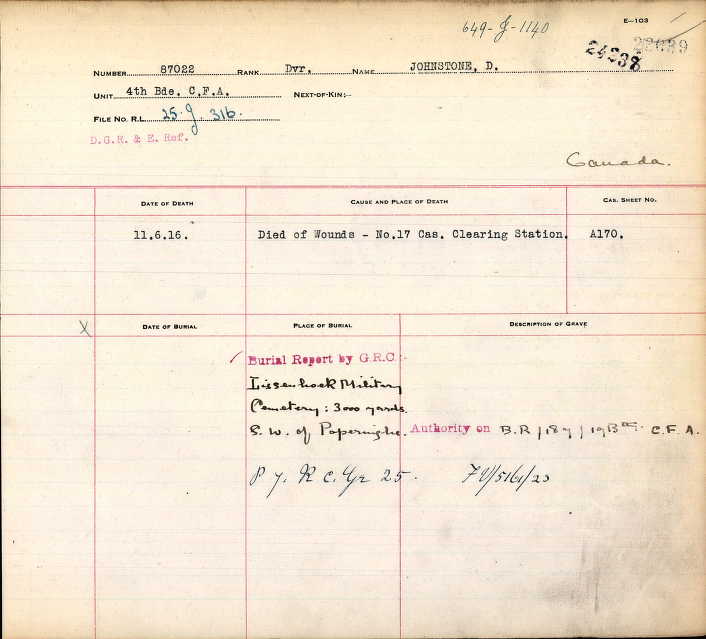 E—103
649-J-1140
24238
NUMBER 87022 RANK Dvr. NAME JOHNSTONE, D.
UNIT 4th Bde. C.F.A. NEXT-OF-KIN:—
FILE NO. R.L. 25.J. 316.
D.G.R. & E. Ref.
Canada.
DATE OF DEATH CAUSE AND PLACE OF DEATH CAS. SHEET NO.
11.6.16. Died of Wounds - No.17 Cas. Clearing Station. A170.
X DATE OF BURIAL PLACE OF BURIAL DESCRIPTION OF GRAVE
Burial Report by G.R.C:-
Lissenhoek Military
Cemetery: 3000 yards.
S.W. of Poperinghe. Authority on B.R/189/19Bde. C.F.A.
P 7. R C. Gr 25.